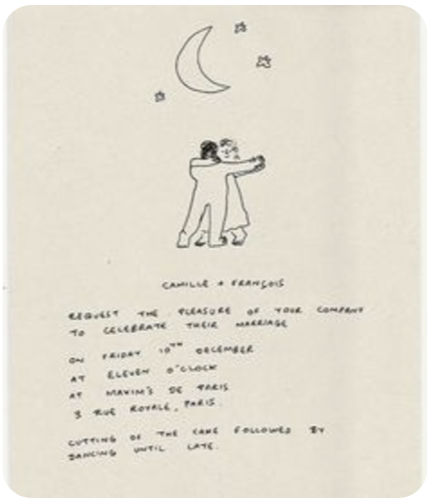 CAMILLE + FRANÇOIS
REQUEST THE PLEASURE OF YOUR COMPANY
TO CELEBRATE THEIR MARRIAGE
ON FRIDAY 10TH DECEMBER
AT ELEVEN O'CLOCK
AT MAXIM'S DE PARIS
3 RUE ROYALE, PARIS.
CUTTING OF THE CAKE FOLLOWED BY
DANCING UNTIL LATE.